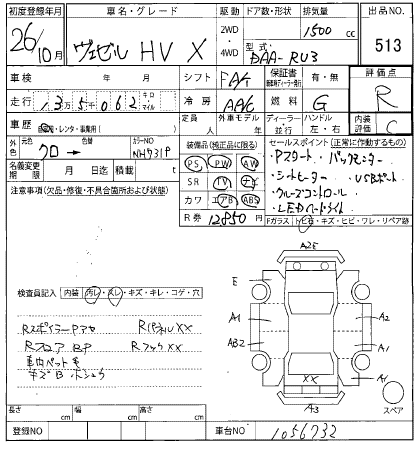 初度登録年月 車名・グレード 駆動 ドア数・形状 排気量 出品NO.
26年10月 ヴェゼル HV X 2WD 4WD 1500 cc 513
型式 DAA-RU3
車検 年 月 シフト FAT 保証書 有・無 評価点 R
走行 1 3万 5千 0 6 2 キロ マイル 冷房 AAC 燃料 G
車歴 自家用・レンタ・事業用( ) 定員 人 外車モデル 年 ディーラー 並行 ハンドル 左・右 内装評価 C
外色 元色 クロ → 色替 カラーNO NH731P 装備品(純正品に限る) セールスポイント(正常に作動するもの)
名義変更期限 月 日 積載 t PS PW AW ・Pスタート ・バックモニター
注意事項(欠品・修復・不具合箇所および状態) SR TV ナビ ・シートヒーター ・USBポート
カワ エアB ABS ・クルーズコントロール
R券 12,850円 ・LEDヘッドライト
Fガラス トビ石・キズ・ヒビ・ワレ・リペア跡
A2E
E
A1 A2
AB2 A1
XX A1
A3
スペア
検査員記入 内装 汚レ・スレ・キズ・キレ・コゲ・穴
RスポイラーPアセ RパネルXX
Rフロア BP RフックXX
車内ペット毛
キズBホシュウ
長さ cm 幅 cm 高さ cm
登録NO 車台NO 1056732